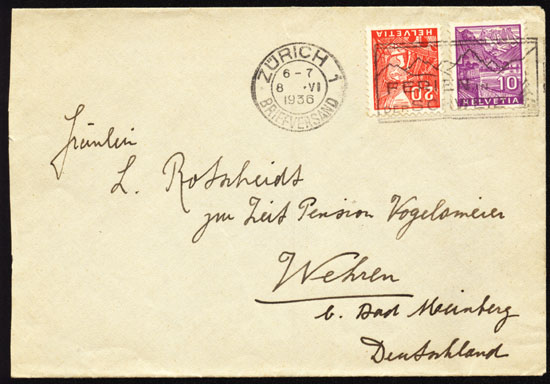 ZÜRICH 1
6-7
8 .VI
1936
BRIEFVERSAND
HELVETIA
20
10
HELVETIA
FERIEN
Fräulein
L. Rotscheidt
zur Zeit Pension Vogelsmeier
Wehren
b. Bad Meinberg
Deutschland